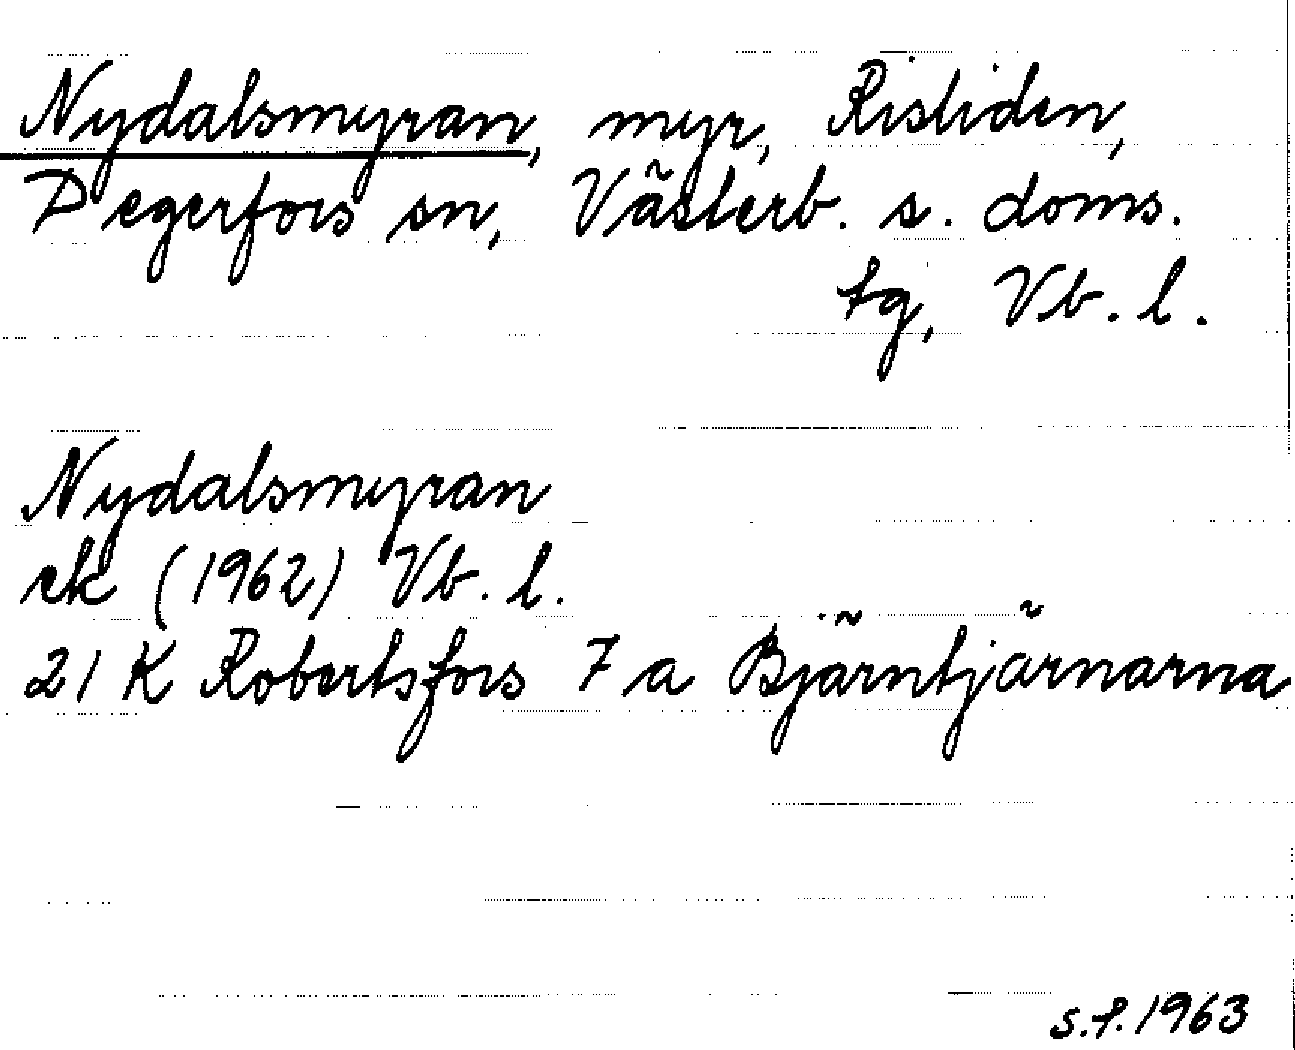 Nydalsmyran, myr, Risliden,
Degerfors sn, Västerb. s. doms.
tg, Vb. l.
Nydalsmyran
ek (1962) Vb. l.
21 K Robertsfors 7 a Björntjärnarna
s.f. 1963